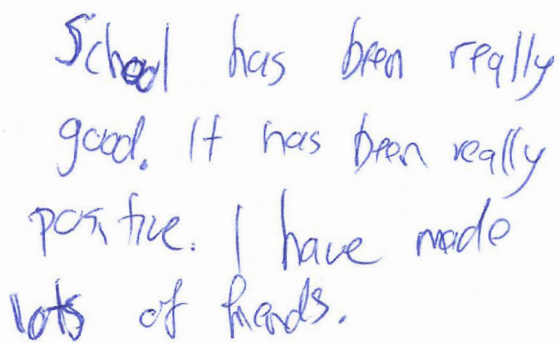 School has been really
good. It has been really
positive. I have made
lots of friends.